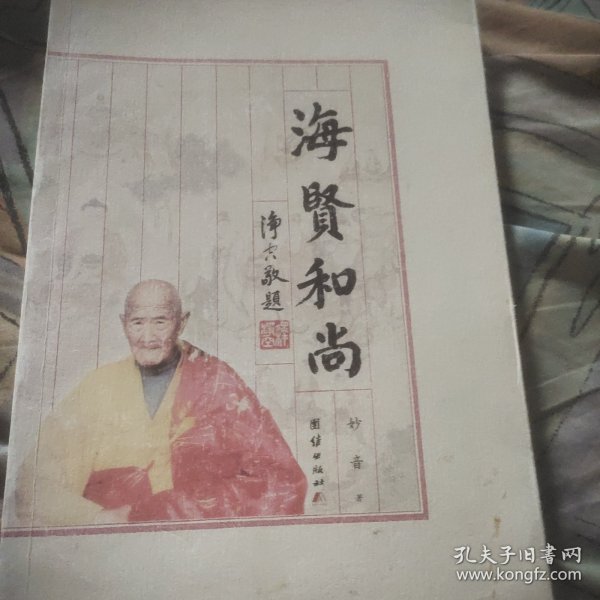 海賢和尚
淨空敬題
妙音 著
团结出版社
孔夫子旧書网
www.kongfz.com